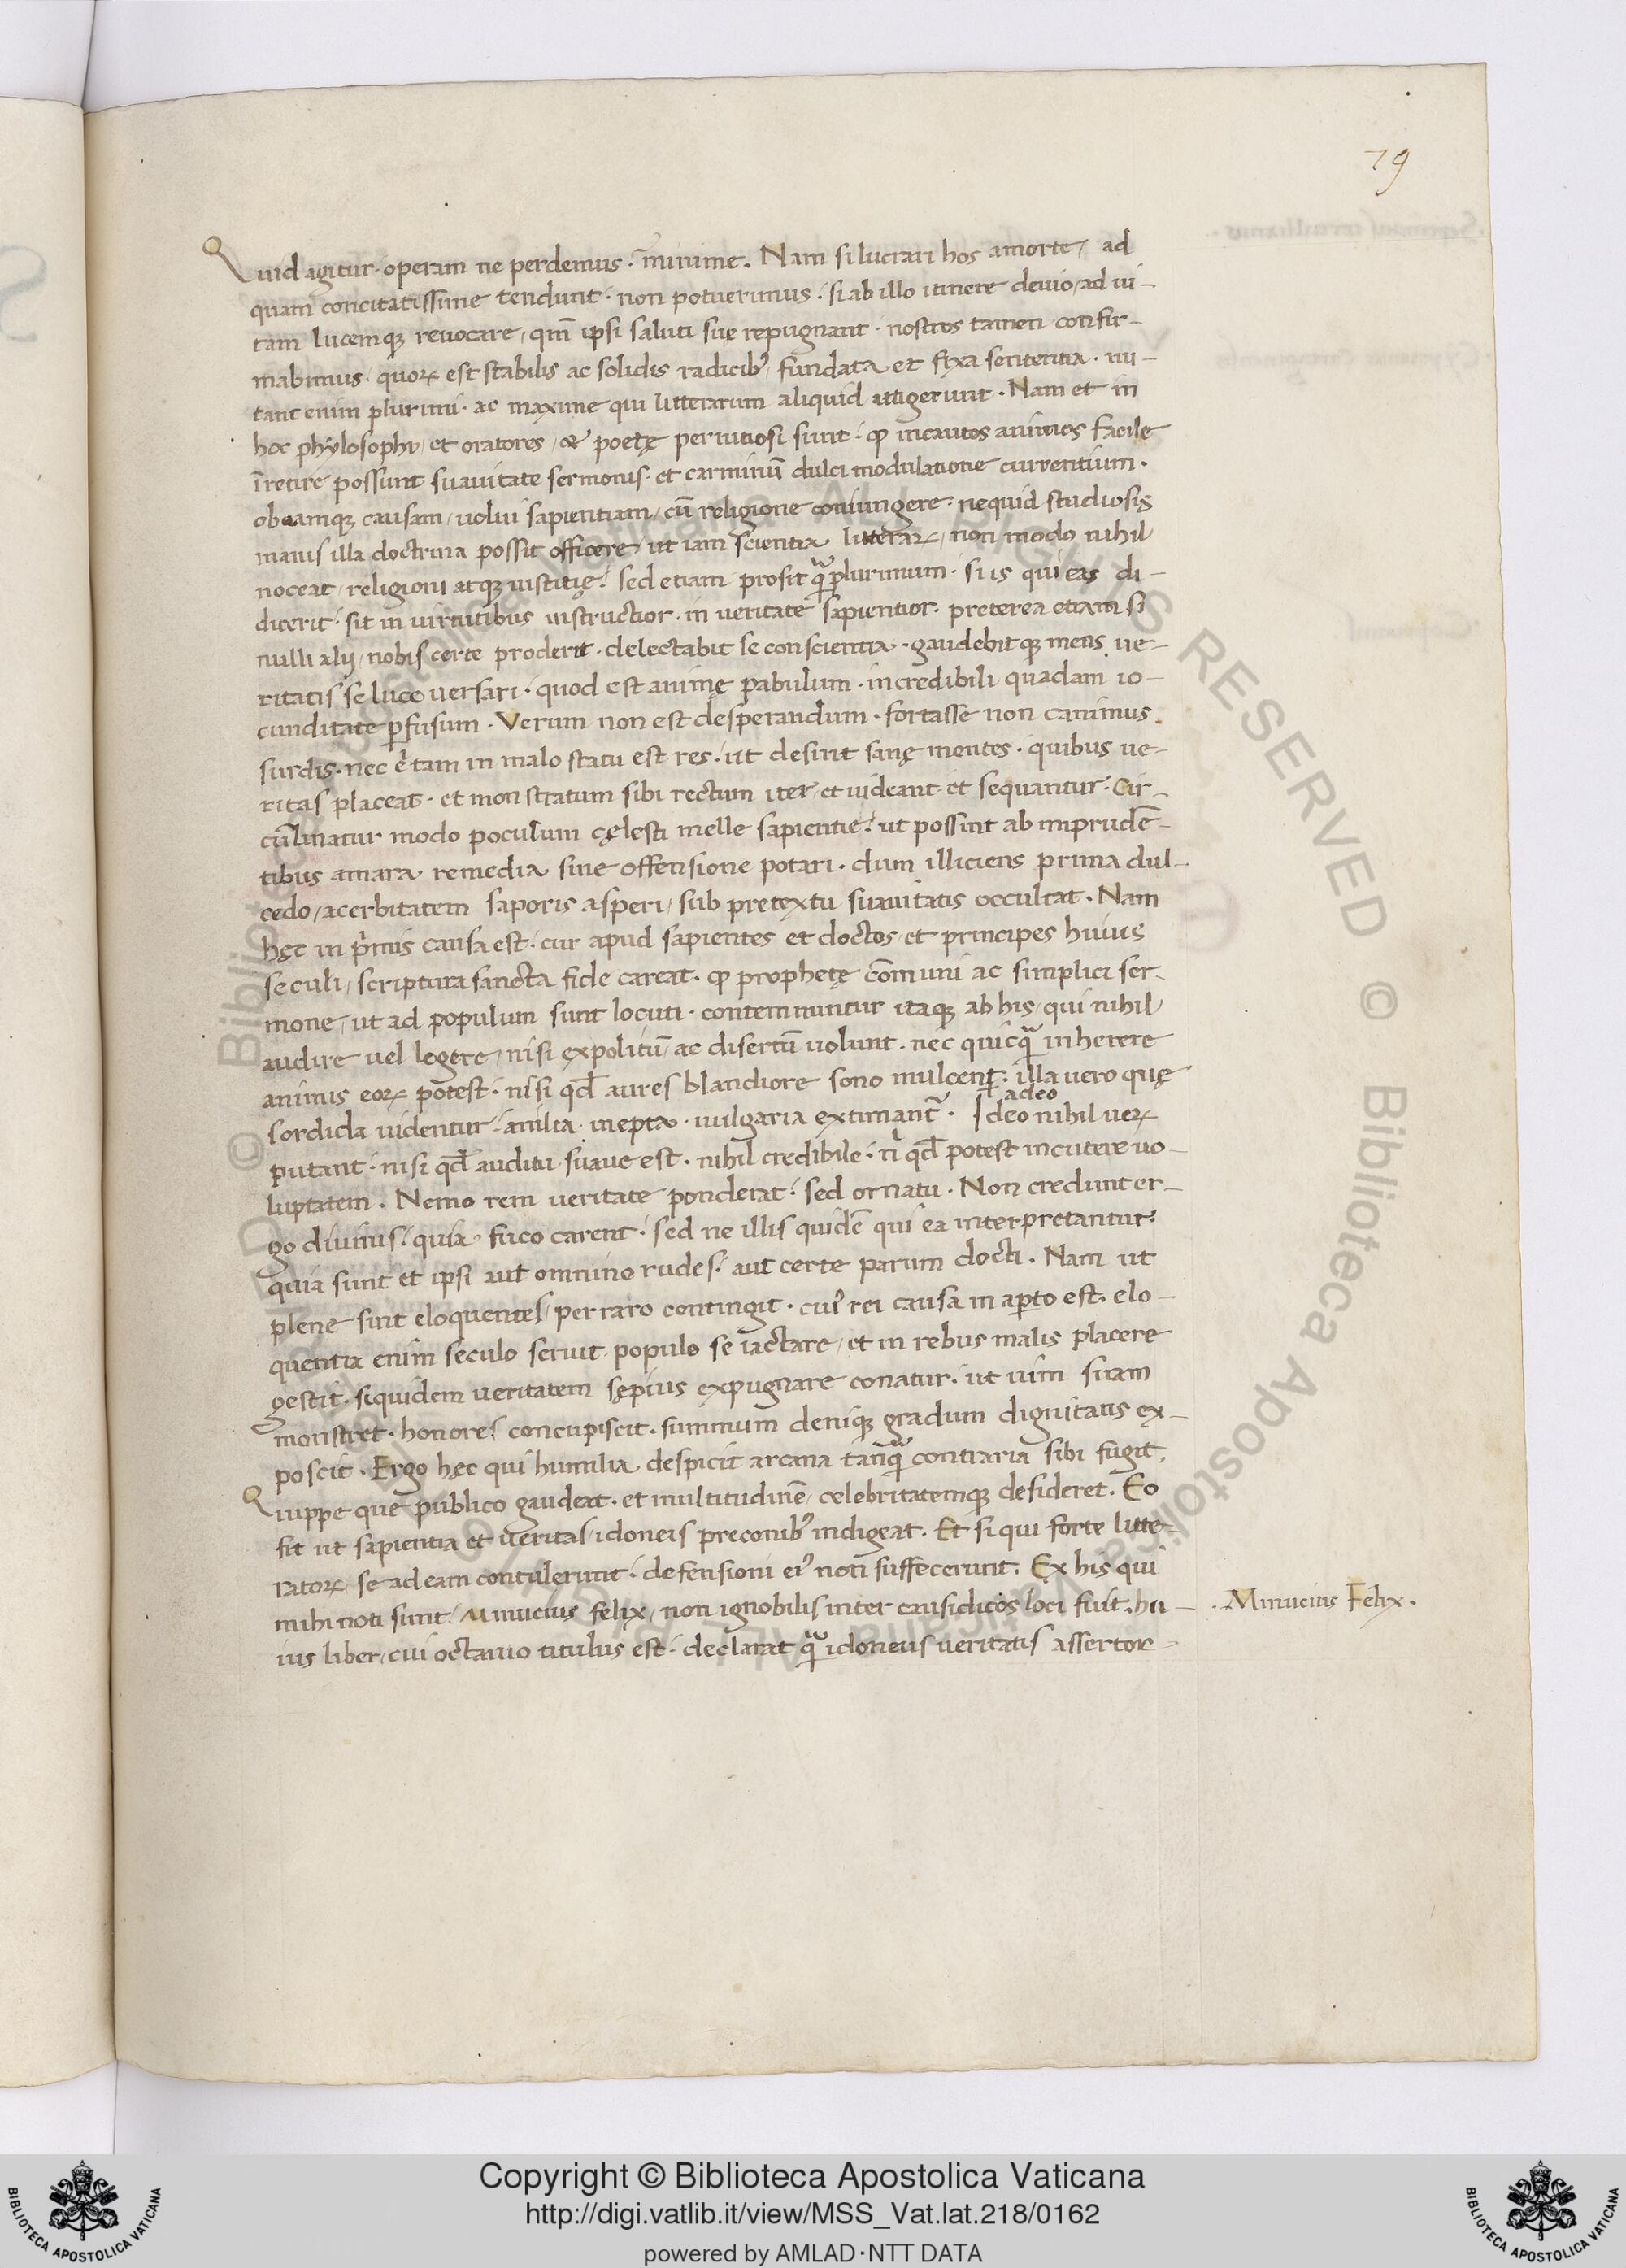 79
Quid agitur· operam ne perdemus· minime. Nam si lucrari hos amorte/ ad
quam concitatissime tendunt· non potuerimus· si ab illo itinere deuio/ ad ui-
tam lucemqȝ reuocare/ qm̄ ipsi saluti suę repugnant· nostros tamen confir-
mabimus· quoꝝ est stabilis ac solidis radicibꝰ fundata et fixa sententia· nu-
tant enim plurimi· ac maxime qui litterarum aliquid attigerunt· Nam et in
hoc phylosophi/ et oratores/ & poetę pernitiosi sunt· ꝙ incautos animos facile
īretire possunt suauitate sermonis· et carminū dulci modulatione currentium·
ob eamqȝ causam/ uolui sapientiam/ cū religione coniungere· nequid studiosis
inanis illa doctrina possit officere/ ut iam scientia litteraꝝ/ non modo nihil
noceat/ religioni atqȝ iustitię· sed etiam prosit qͣꝫ plurimum· si is qui eas di-
dicerit· sit in uirtutibus instructior· in ueritate sapientior· preterea etiam si
nulli alij/ nobis certe proderit· delectabit se conscientia· gaudebitqȝ mens ue-
ritatis se luce uersari· quod est animę pabulum· incredibili quadam io-
cunditate ꝑfusum· Verum non est desperandum· fortasse non canimus
surdis· nec ē tam in malo statu est res· ut desint sanę mentes· quibus ue-
ritas placeat· et monstratum sibi rectum iter/ et uideant et sequantur· Cir-
cūlinatur modo poculum cęlesti melle sapientie· ut possint ab imprudē-
tibus amara remedia sine offensione potari· dum illiciens prima dul-
cedo/ acerbitatem saporis asperi/ sub pretextu suauitatis occultat· Nam
hęc in p̄mis causa est· cur apud sapientes et doctos/ et principes huius
seculi/ scriptura sancta fide careat· ꝙ prophetę cōmuni ac simplici ser-
mone/ ut ad populum sunt locuti· contemnuntur itaqȝ ab his/ qui nihil
audire uel legere/ nisi expolitū ac disertū uolunt· nec quicqͣꝫ inherere
animis eoꝝ potest· nisi qd̄ aures blandiore sono mulcent· illa uero quę
adeo
sordida uidentur· anilia· inepta· uulgaria extimant᷑· Ideo nihil ueꝝ
putant· nisi qd̄ auditu suaue est· nihil credibile· n̄ qd̄ potest incutere uo-
luptatem· Nemo rem ueritate ponderat· sed ornatu· Non credunt er-
go diuinis· quia fuco carent· sed ne illis quidē qui ea interpretantur·
quia sunt et ipsi aut omnino rudes· aut certe parum docti· Nam ut
plene sint eloquentes/ perraro contingit· cuiꝰ rei causa in aꝑto est· elo-
quentia enim seculo seruit populo se iactare/ et in rebus malis placere
gestit· siquidem ueritatem sępius expugnare conatur· ut uim suam
monstret· honores concupiscit· summum denique gradum dignitatis ex-
poscit· Ergo hęc qui humilia despicit arcana tanqͣꝫ contraria sibi fugit,
Quippe que publico gaudeat· et multitudinē/ celebritatemqȝ desideret· Eo
fit ut sapientia et ueritas/ idoneis preconibꝰ indigeat· Et si qui forte litte-
ratoꝝ/ se ad eam contulerunt· defensioni eiꝰ non suffecerunt· Ex his qui
mihi noti sunt/ Minucius felix/ non ignobilis inter causidicos loci fuit· hu-
ius liber/ cui octauio titulus est· declarat qͣꝫ idoneus ueritatis assertor
· Minucius Felix ·
Copyright © Biblioteca Apostolica Vaticana
http://digi.vatlib.it/view/MSS_Vat.lat.218/0162
powered by AMLAD·NTT DATA
BIBLIOTECA APOSTOLICA VATICANA
BIBLIOTECA APOSTOLICA VATICANA